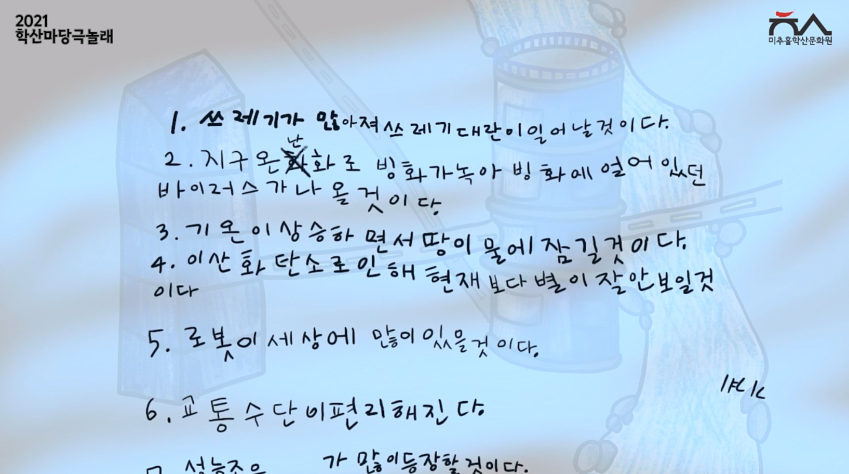 2021
학산마당극놀래
미추홀학산문화원
1. 쓰레기가 많아져 쓰레기대란이일어날것이다.
2. 지구온난화로 빙화가녹아 빙화에 얼어 있던
바이러스가나 올것이다
3. 기온이상승하면서 땅이 물에 잠길것이다.
4. 이산화탄소로인해 현재보다 별이 잘안보일것
이다
5. 로봇이세상에 많이있을것이다.
6. 교통수단이편리해진다
가 많이등장할것이다.